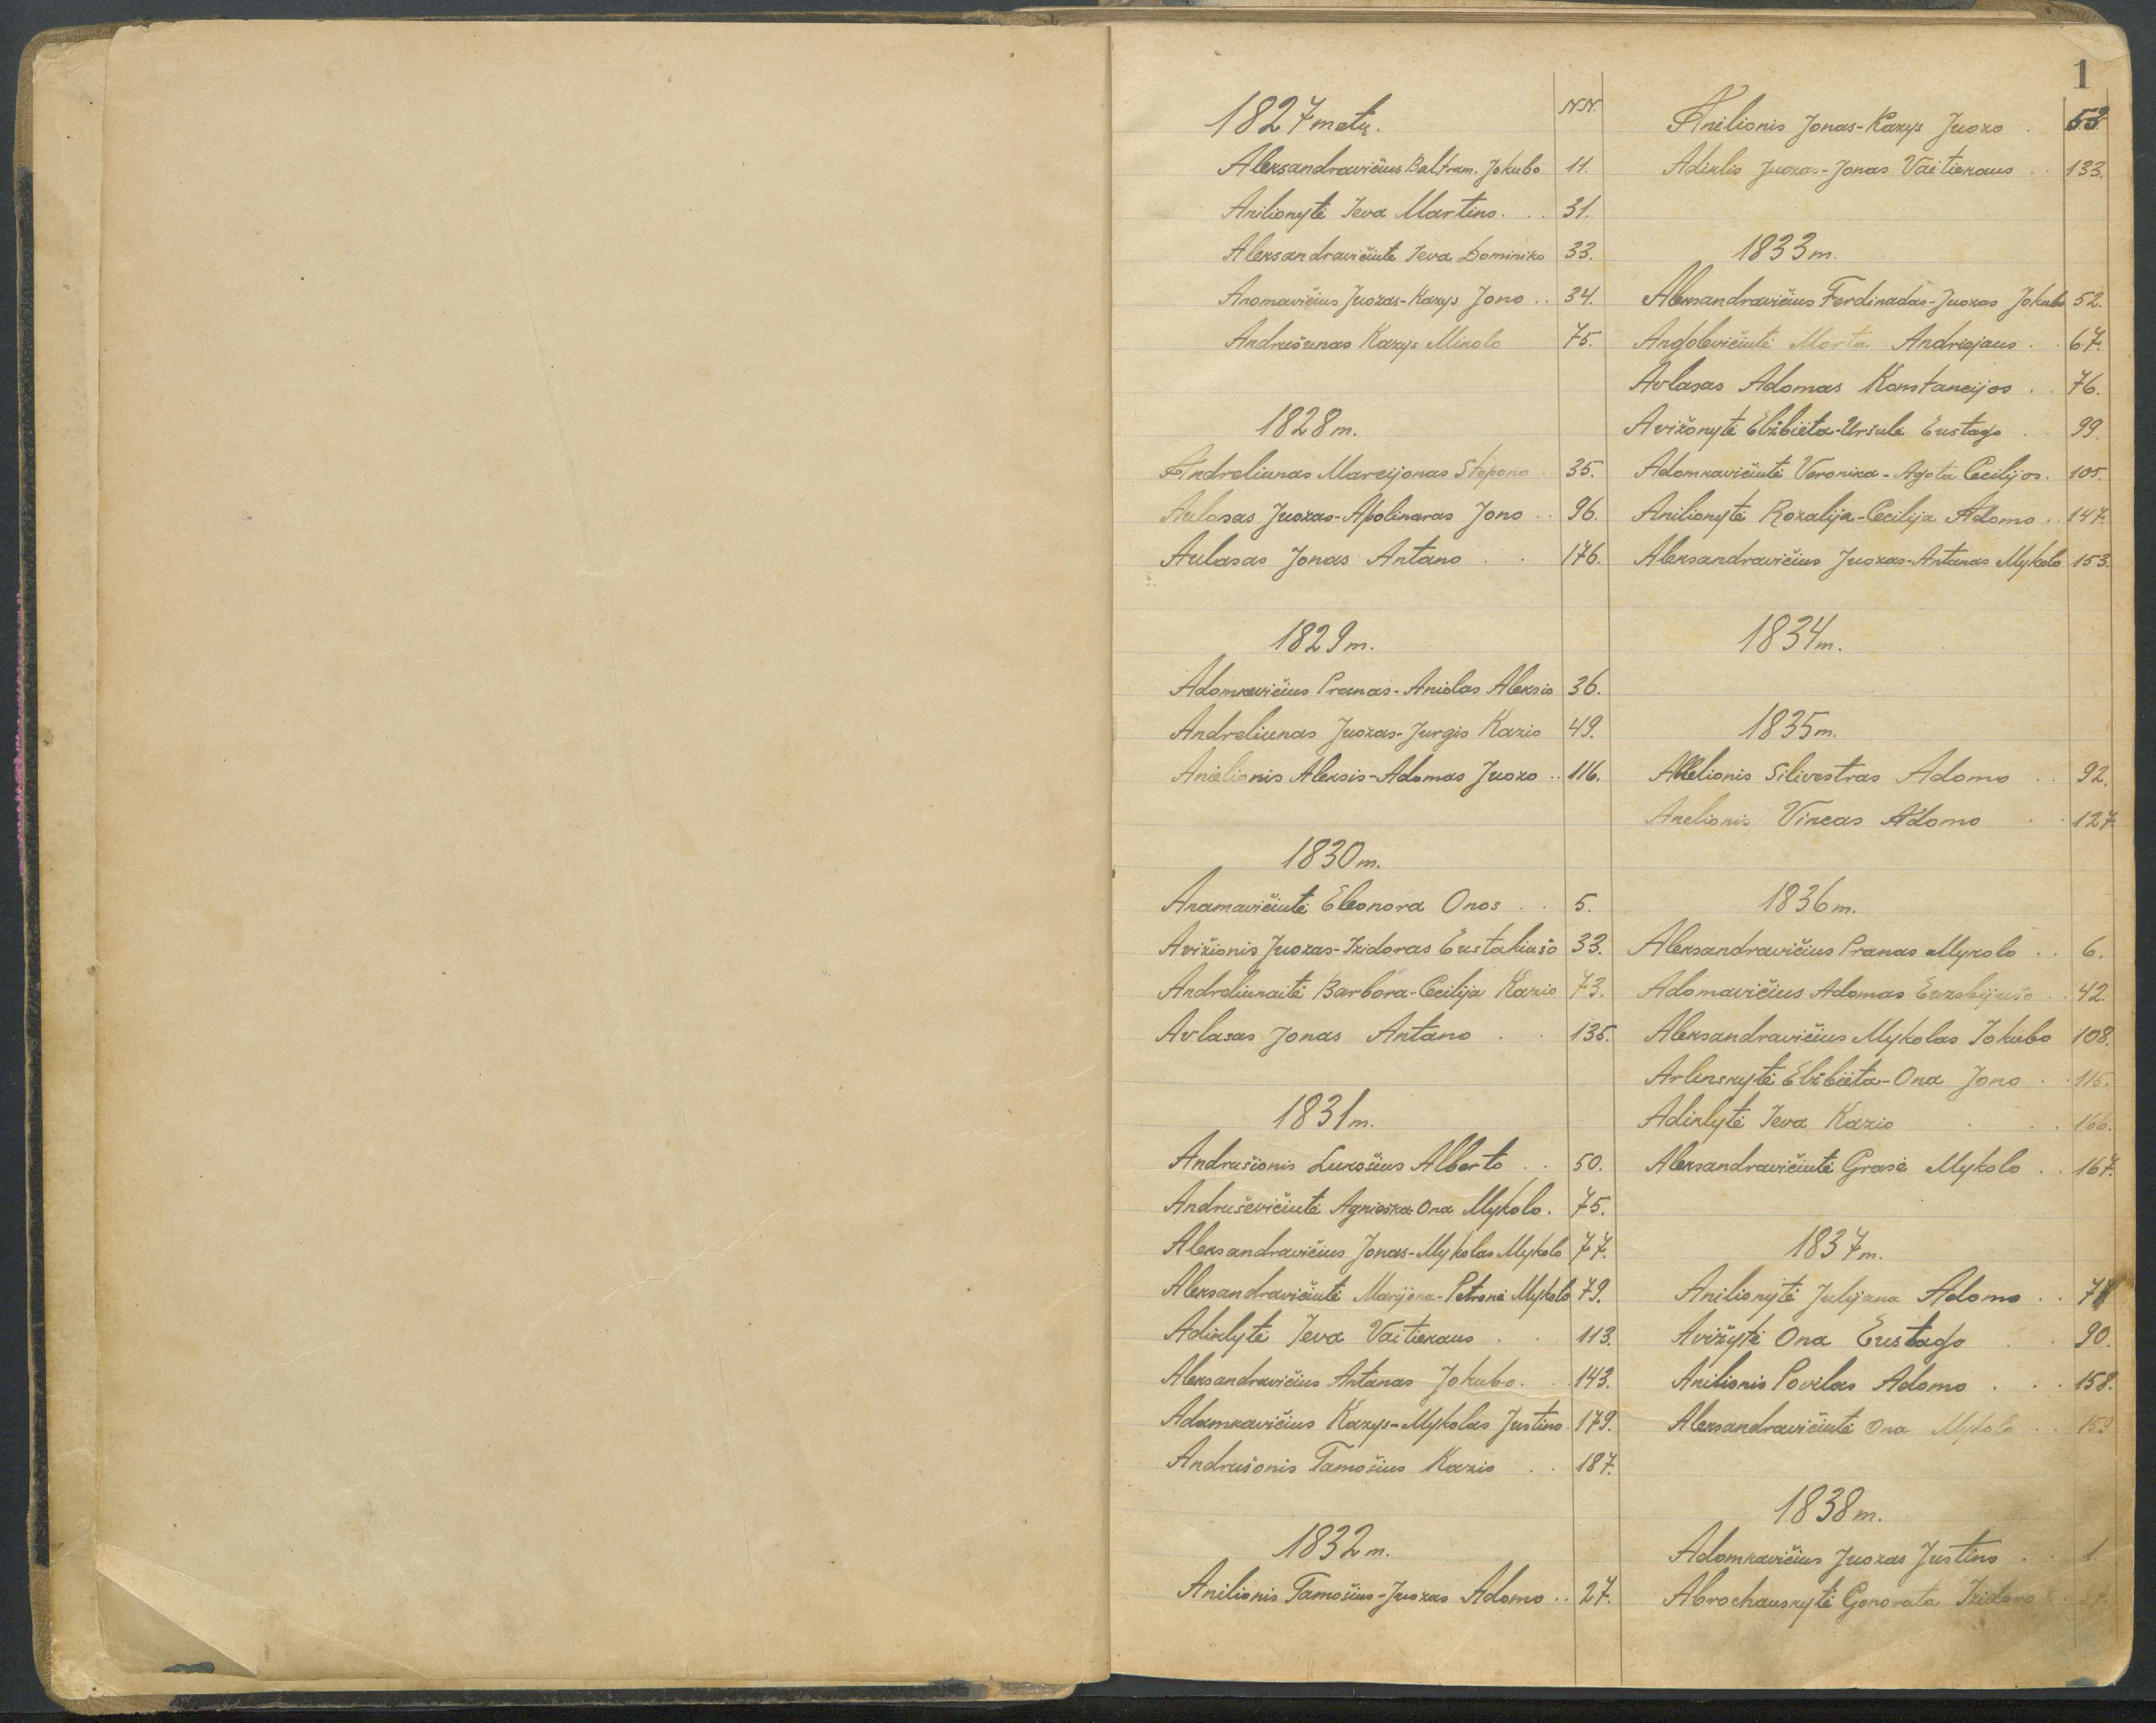 1
1827 metų. NN.
Aleksandravičius Baltram. Jokubo 11.
Anilionytė Ieva Martino. . . 31.
Aleksandravičiutė Ieva Dominiko 33.
Anomavičius Juozas-Kazys Jono . . 34.
Andrušunas Kazys Mikolo 75.
1828 m.
Andreliunas Marcijonas Stepono 35.
Aulasas Juozas-Apolinaras Jono . . 96.
Aulasas Jonas Antano . . 176.
1829 m.
Adomkavičius Pranas-Aniolas Aleksio 36.
Andreliunas Juozas-Jurgis Kazio 49.
Anielionis Aleksis-Adomas Juozo . . 116.
1830 m.
Anamavičiutė Eleonora Onos . . 5.
Avižionis Juozas-Izidoras Eustakiušo 33.
Andreliunaitė Barbora-Cecilija Kazio 73.
Avlasas Jonas Antano . . 135.
1831 m.
Andrušionis Lukošius Alberto . . 50.
Andruševičiutė Agnieška Ona Mykolo. 75.
Aleksandravičius Jonas-Mykolas Mykolo 77.
Aleksandravičiutė Marijona-Petronė Mykolo 79.
Adiklytė Ieva Vaitiekaus . . 113.
Aleksandravičius Antanas Jokubo. . 143.
Adamkavičius Kazys-Mykolas Justino. 179.
Andrušonis Tamošius Kazio . . 187.
1832 m.
Anilionis Tamošius-Juozas Adomo . . 27.
Anilionis Jonas-Kazys Juozo . 53.
Adiklis Juozas-Jonas Vaitiekaus . . 133.
1833 m.
Aleksandravičius Ferdinadas-Juozas Jokubo 52.
Angolevičiutė Morta Andriejaus . . 67.
Avlasas Adomas Konstancijos . . 76.
Avižonytė Elžbieta-Uršulė Eustago . . 99.
Adomkavičiutė Veronika-Agota Cecilijos. 105.
Anilionytė Rozalija-Cecilija Adomo . . 147.
Aleksandravičius Juozas-Antanas Mykolo 153.
1834 m.
1835 m.
Anelionis Silivestras Adomo . . 92.
Anelionis Vincas Adomo . . 127.
1836 m.
Aleksandravičius Pranas Mykolo . . 6.
Adomavičius Adomas Euzebijušo . . 42.
Aleksandravičius Mykolas Jokubo 108.
Arlinskytė Elžbieta-Ona Jono . . 115.
Adiklytė Ieva Kazio . . . 166.
Aleksandravičiutė Grasė Mykolo . . 167.
1837 m.
Anilionytė Julijana Adomo . .
Avižytė Ona Eustago . . 90.
Anilionis Povilas Adomo . . . 158.
Aleksandravičiutė Ona Mykolo . . 159
1838 m.
Adomkavičius Juozas Justino . . 1
Abrochauskytė Gonorata Izidoro . .